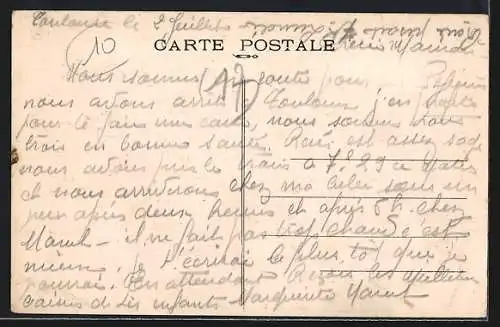 Toulouse le 2 Juillet
10
CARTE POSTALE
Nous sommes en route pour
nous avons arrivé à Toulouse j'en profite
pour te faire une carte, nous sommes tous
trois en bonne santé. René est assez sage
nous avons pris le train à 7h 29 ce matin
et nous arriverons chez ma belle sœur un
peu après deux heures et après 5h. chez
Marcel - il ne fait pas trop chaud c'est
mieux, je t'écrirai le plus tôt que je
pourrai. En attendant les meilleurs
baisers de tes enfants Marguerite Marcel